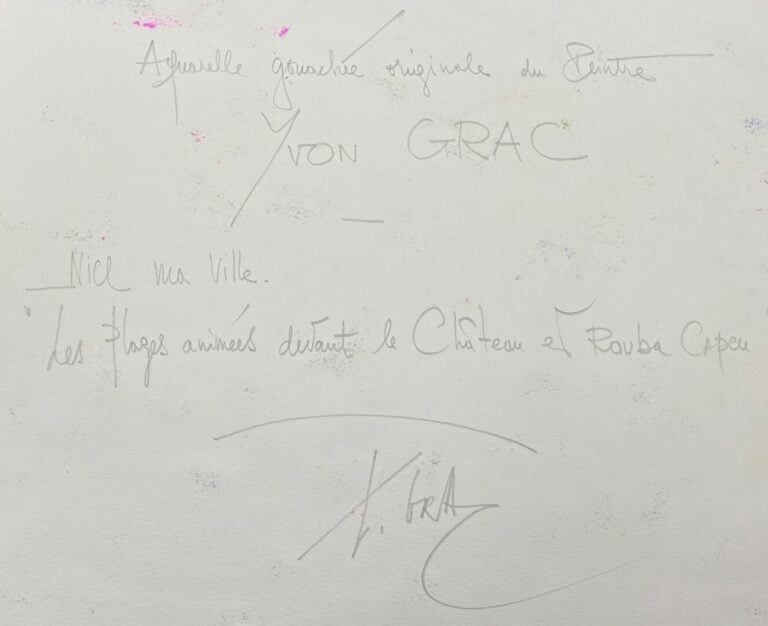 Aquarelle gouachée originale du Peintre
Yvon GRAC
Nice ma Ville.
"Les Plages animées devant le Château et Rauba Capeu"
Y. GRAC